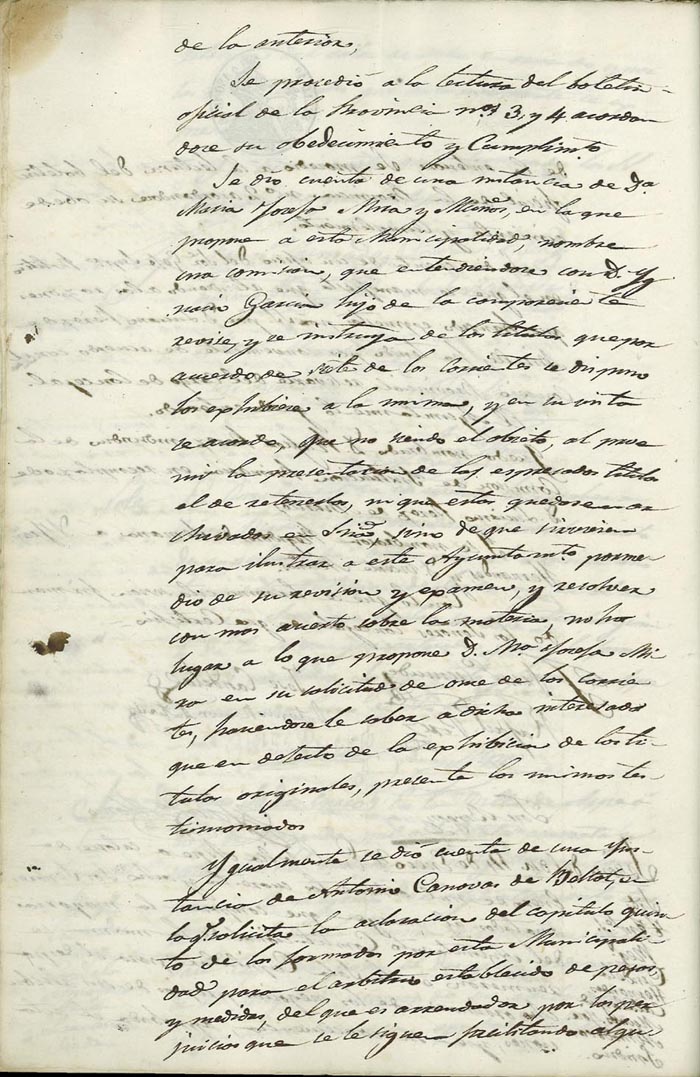 de la anterior,
Se procedió a la lectura del boletin
oficial de la Provincia n.os 3, y 4 acordan
dose su obedecimiento y Cumplim.to
Se dio cuenta de una instancia de D.a
Maria Josefa Mira y Muños, en la que
propone a esta Municipalidad, nombre
una comision, que entendiendose con D. Yg
nacio Garcia hijo de la compareciente
revise, y se instruya de los titulos que por
acuerdo de siete de los corrientes se dispuso
los exhibiese a la misma, y en su vista
se acordo, que no siendo el objeto, al preve
nir la presentacion de los espresados titulos
el de retenerlos, ni que estos quedasen ar
chivados en Sria, sino de que sirviesen
para ilustrar a este Ayuntam.to porme
dio de su revision y examen, y resolver
con mas acierto sobre la materia, no ha
lugar a lo que propone D. M.a Josefa Mi
ra en su solicitud de onse de los corrien
tes, haciendosele saber a dicha interesada
que en defecto de la exhibicion de los ti
tulos originales, presente los mismos tes
timoniados
Ygualmente se dió cuenta de una Yns
tancia de Antonio Canovas de Beltot, en
la q.e solicita la aclaracion del capitulo quin
to de los formados por esta Municipali
dad para el arbitrio establecido de pesos
y medidas, del que es arrendador por los per
juicios que se le siguen facilitando algu